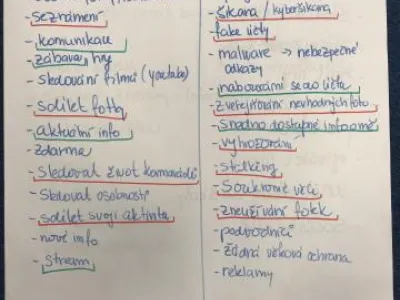 -seznámení
-komunikace
-zábava, hry
-sledování filmů (youtube)
-sdílet fotky
-aktuální info
-zdarma
-sledovat život kamarádů
-sledovat osobnosti
-sdílet svoji aktivitu
-nové info
-stream
-šikana / kyberšikana
-fake účty
-malware → nebezpečné
odkazy
-nabourání se do účtu
-zveřejňování nevhodných foto
-snadno dostupné info o mě
-vyhrožování
-stalking
-soukromé věci
-zneužívání fotek
-podvodníci
-žádná věková ochrana
-reklamy